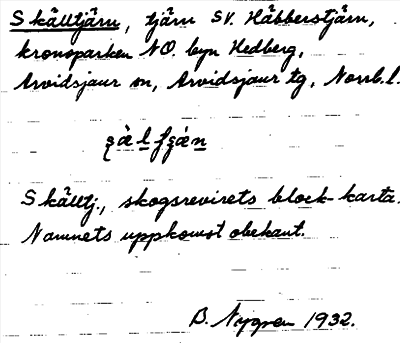 Skälltjärn, tjärn SV. Häbberstjärn,
kronoparken NO. byn Hedberg,
Arvidsjaur sn, Arvidsjaur tg, Norrb.l.
Skälltj., skogsrevirets block-karta.
Namnets uppkomst obekant.
B. Nygren 1932.